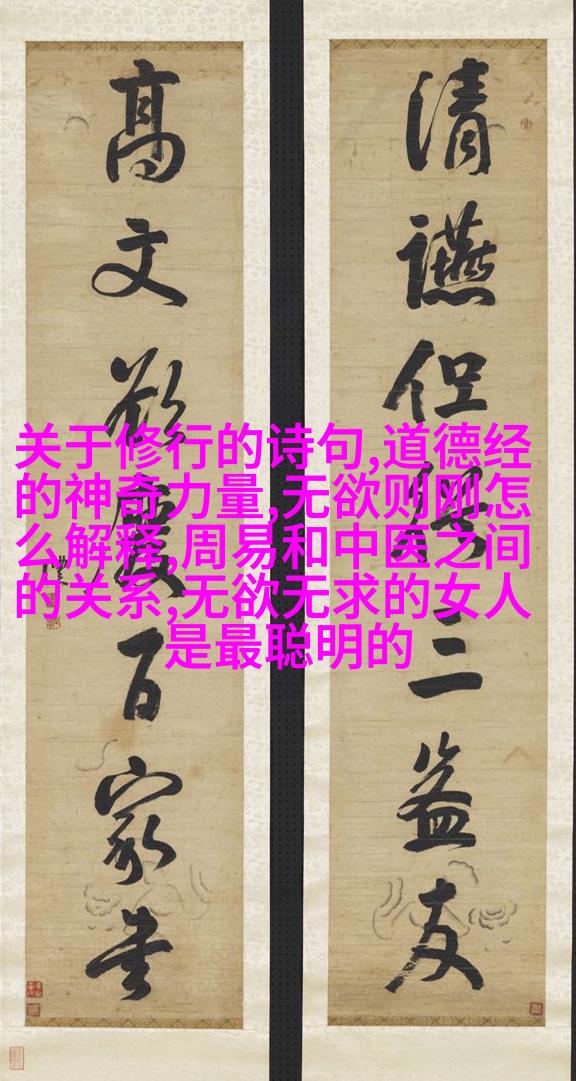 清讌但三益友
高文欲廢百家書
关于修行的诗句,道德经
的神奇力量,无欲则刚怎
么解释,周易和中医之间
的关系,无欲无求的女人
是最聪明的